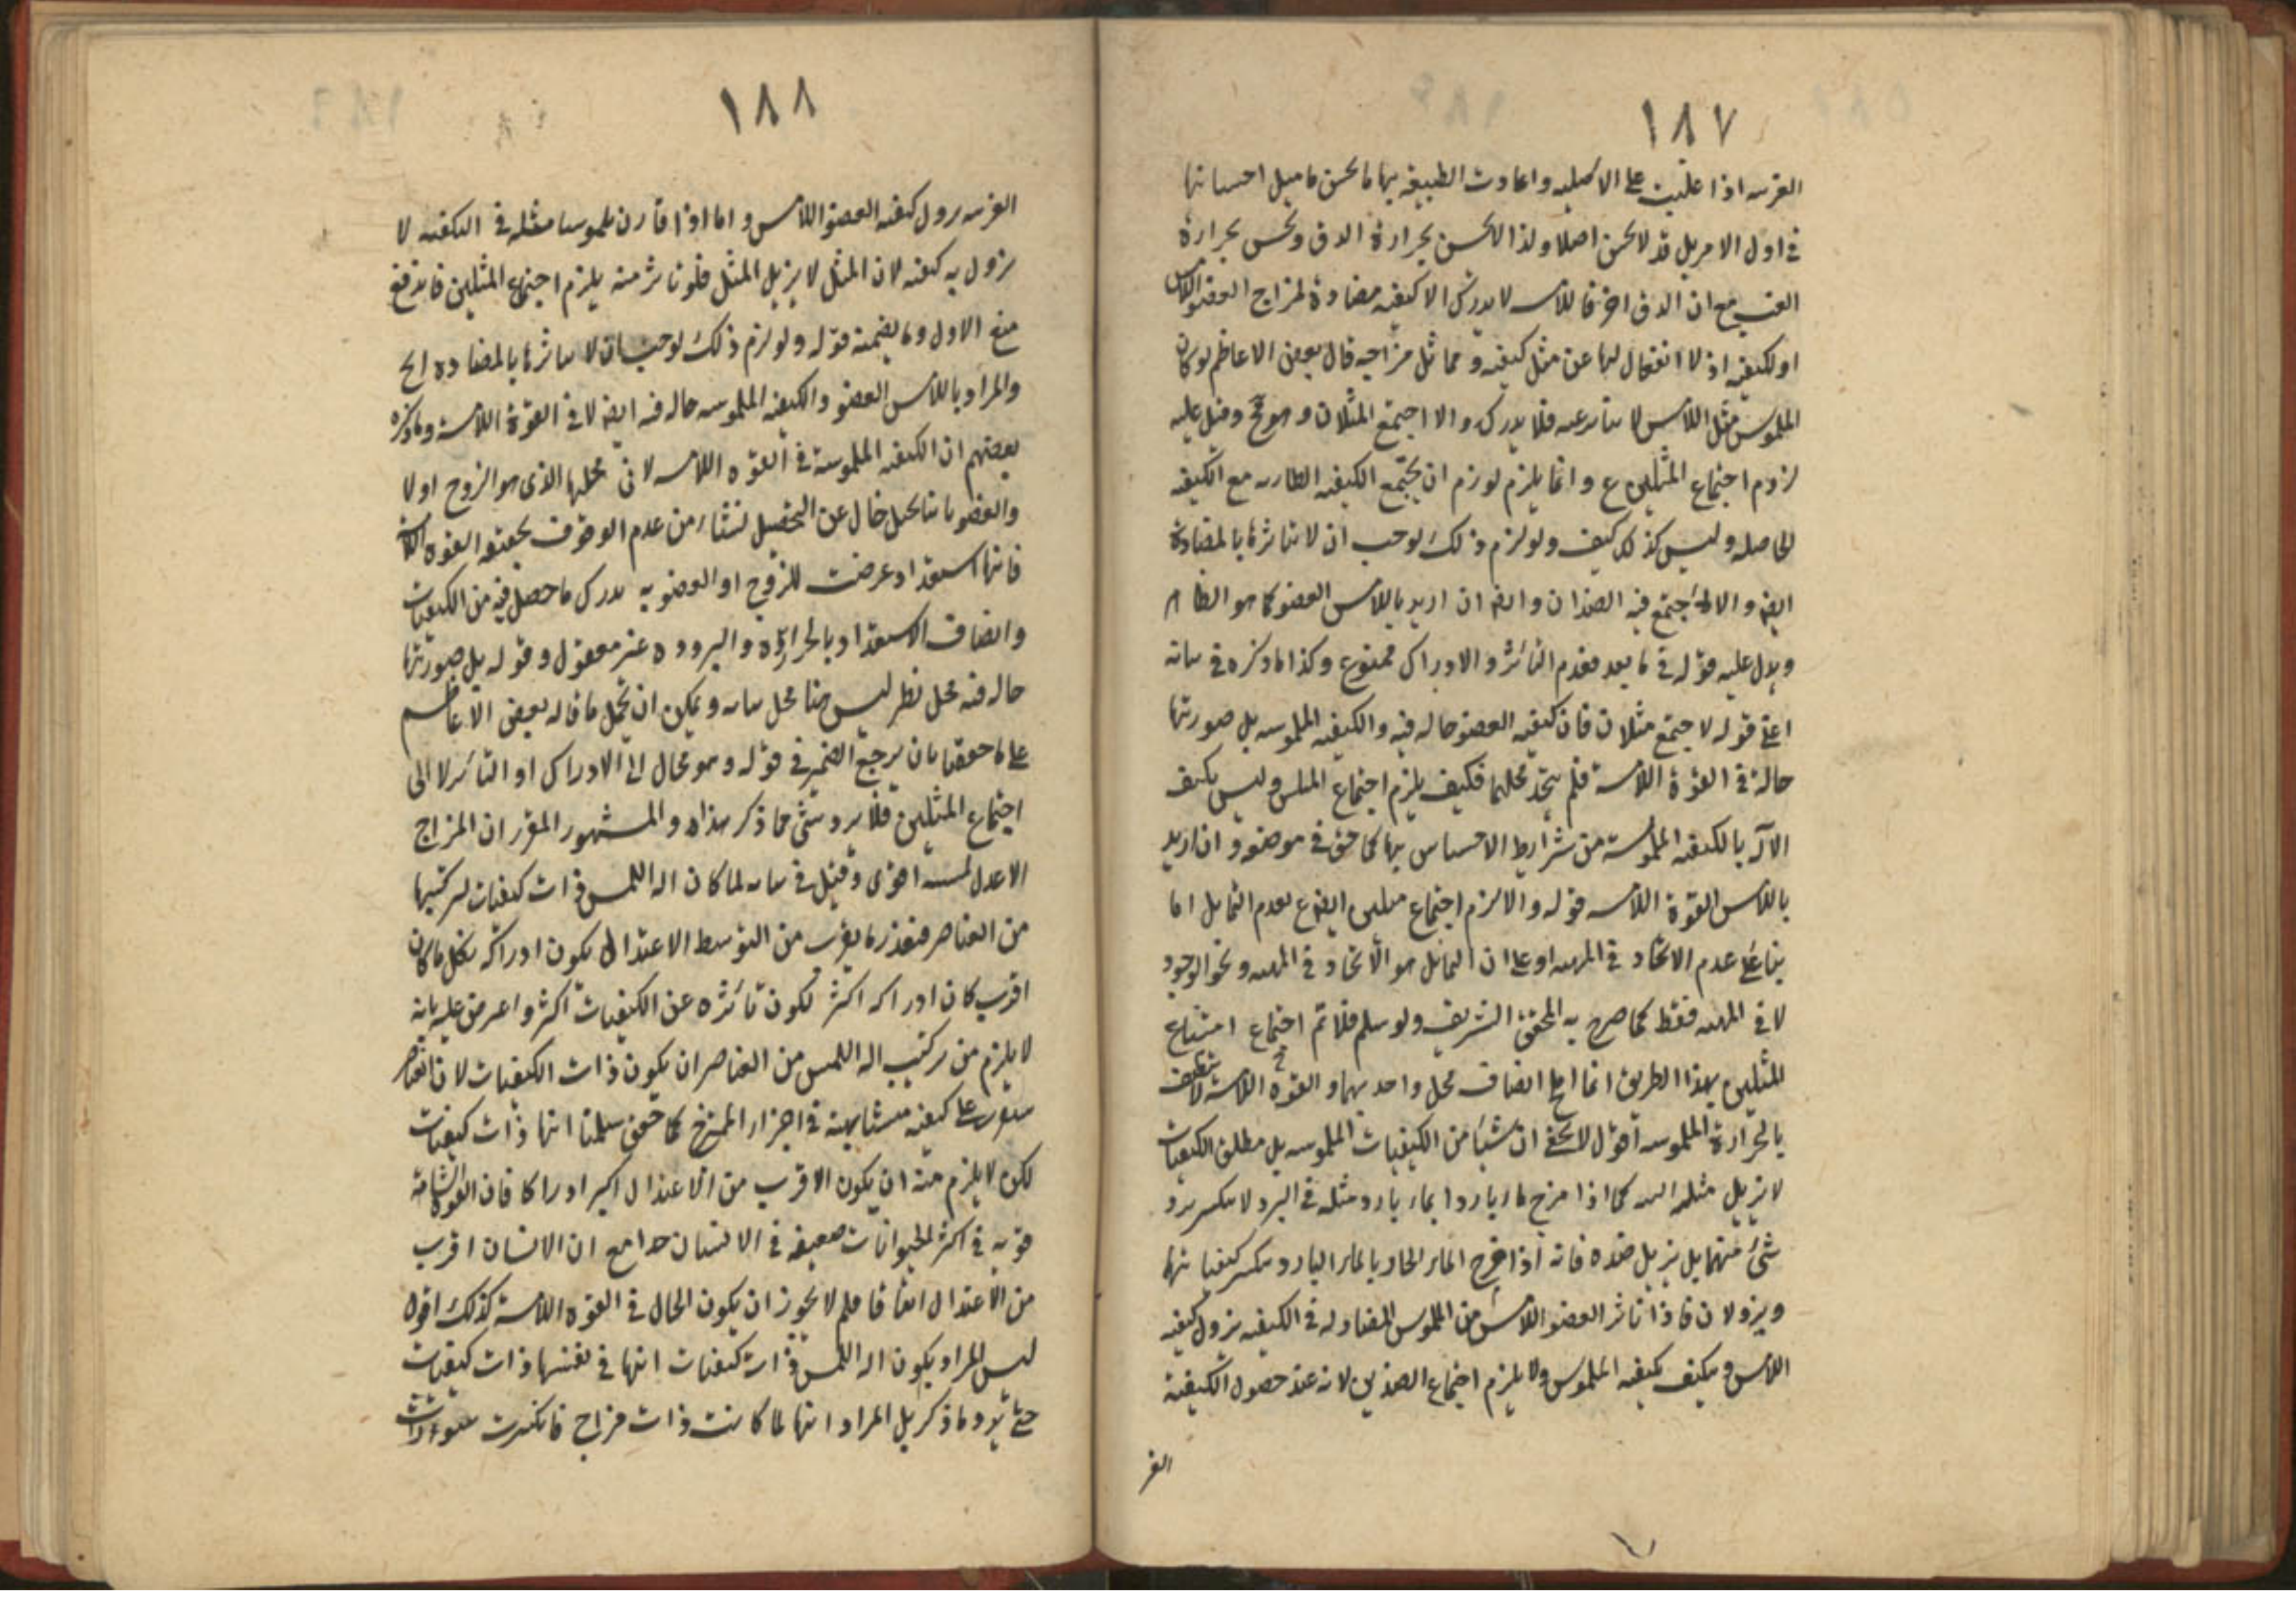 ١٨٧
اذا غلبت على الاصلية واعادت الطبيعة
في اول الامر بل قد لا يحس اصلا ولذا لا يحس بحرارة الدق ويحس بحرارة
الغب مع ان الدق احر فاللامسة لا يدرك الا كيفية مضادة لمزاج العضو اللامس
او لكيفيته اذ لا انفعال لها عن مثل كيفية ومماثل مزاجيه قال بعض الاعاظم لو كان
الملموس مثل اللامس لا يتاثر عنه فلا يدرك والا اجتمع المثلان و هو مح وقيل عليه
لزوم اجتماع المثلين ع وانما يلزم لو لزم ان يجتمع الكيفية الطارية مع الكيفية
الحاصلة وليس كذلك كيف ولو لزم ذلك لوجب ان لا يتاثرها بالمضادة
ايضا والا اجتمع فيه الضدان وايضا ان اريد باللامس العضو كما هو الظاهر
ويدل عليه قوله في ما بعد فعدم التاثر والادراك ممنوع وكذا ما ذكره في بيانه
اعني قوله لاجتمع مثلان فان كيفية العضو حالة فيه والكيفية الملموسة بل صورتها
حالة في القوة اللامسة فلم يتحد محلهما فكيف يلزم اجتماع المثلين وليس تكيف
الآلة بالكيفية الملموسة من شرايط الاحساس بها كما حقق في موضعه وان اريد
باللامس القوة اللامسة قوله والا لزم اجتماع مثلين ايضا ع لعدم التماثل اما
بناء على عدم الاتحاد في المهية او على ان التماثل هو الاتحاد في المهية ونحو الوجود
لا في المهية فقط كما صرح به المحقق الشريف ولو سلم فلا تم اجتماع امتناع
المثلين بهذا الطريق انما المح اتصاف محل واحد بهما والقوة اللامسة لا تتصف
بالحرارة الملموسة اقول لا يخفى ان شيئا من الكيفيات الملموسة بل مطلق الكيفيات
لا يزيل مثله البتة كما اذا مزج ماء باردا بماء بارد مثله في البرد لا ينكسر برد
شئ منهما بل يزيل ضده فانه اذا مزج الماء الحار بالماء البارد ينكسر كيفياتهما
ويزولان فاذا تاثر العضو اللامس من الملموس المضاد له في الكيفية يزول كيفية
اللامس ويتكيف بكيفية الملموس ولا يلزم اجتماع الضدين لانه عند حصول الكيفية
الغر
١٨٨
يزول كيفية العضو اللامس واما اذا قارن ملموسا مثله في الكيفية لا
يزول به كيفيته لان المثل لا يزيل المثل فلو تاثر منه يلزم اجتماع المثلين فاندفع
منع الاول وما يضمنه قوله ولو لزم ذلك لوجب ان لا يتاثرها بالمضادة الخ
والمراد باللامس العضو والكيفية الملموسة حالة فيه ايضا لا في القوة اللامسة وما ذكره
بعضهم ان الكيفية الملموسة في القوة اللامسة لا في محلها الذي هو الروح اولا
والعضو ثانيا تخيل خال عن التحصيل نشاء من عدم الوقوف بحقيقة القوة اللامسة
فانها استعداد عرضت للروح او العضو به يدرك ما حصل فيه من الكيفيات
واتصاف الاستعداد بالحرارة والبرودة غير معقول وقوله بل صورتها
حالة فيه محل نظر ليس هنا محل بيانه ويمكن ان يحمل ما قاله بعض الاعاظم
على ما حققنا بان يرجع الضمير في قوله وهو محال الى الادراك او التاثر لا الى
اجتماع المثلين فلا يرد شئ مما ذكر هذا والمشهور المقرر ان المزاج
الاعدل لمسه اقوى وقيل في بيانه لما كان آلة اللمس ذات كيفيات لتركيبها
من العناصر فبقدر ما يقرب من التوسط الاعتدال يكون ادراكه فكل ما كان
اقرب كان ادراكه اكثر لكون تاثره عن الكيفيات اكثر واعرض عليه بانه
لا يلزم من تركيب آلة اللمس من العناصر ان يكون ذات الكيفيات لان العناصر
على كيفية متشابهة في اجزاء الممتزج كما حقق سلمنا انها ذات كيفيات
لكن لا يلزم منه ان يكون الاقرب من الاعتدال اكثر ادراكا فان القوة الشامة
قوية في اكثر الحيوانات ضعيفة في الانسان جدا مع ان الانسان اقرب
من الاعتدال اتفاقا فلم لا يجوز ان يكون الحال في القوة اللامسة كذلك اقول
ليس المراد بكون آلة اللمس ذات كيفيات انها في نفسها ذات كيفيات
حتى يرد ما ذكر بل المراد انها لما كانت ذات مزاج فانكسرت